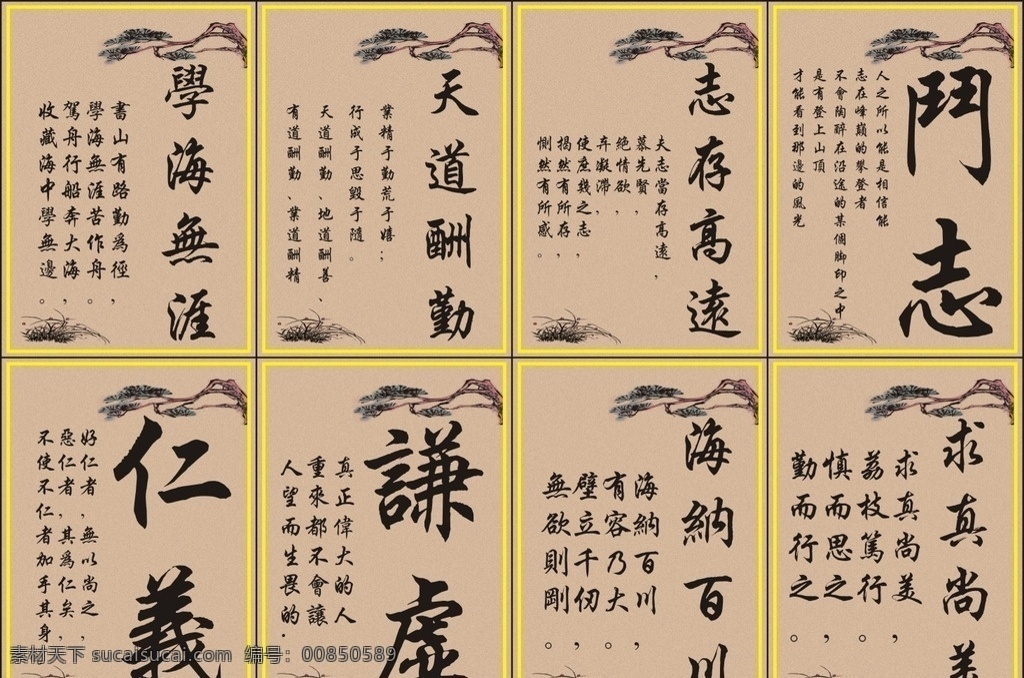 學海無涯
書山有路勤為徑,
學海無涯苦作舟。
駕舟行船奔大海,
收藏海中學無邊。
天道酬勤
業精于勤荒于嬉;
行成于思毀于隨。
天道酬勤、地道酬善、
有道酬勤、業道酬精
志存高遠
夫志當存高遠,
慕先賢,
絕情欲,
弃凝滯,
使庶幾之志
揭然有所存,
惻然有所感。
鬥志
人之所以能是相信能
志在峰巔的攀登者
不會陶醉在沿途的某個脚印之中
是有登上山頂
才能看到那邊的風光
仁義
好仁者,無以尚之,
惡仁者,其為仁矣,
不使不仁者加手其身,
謙虛
真正偉大的人
重來都不會讓
人望而生畏的.
海納百川
海納百川,
有容乃大。
壁立千仞,
無欲則剛。
求真尚美
求真尚美,
荔枝篤行。
慎而思之,
勤而行之。
素材天下 sucaisucai.com 编号：00850589